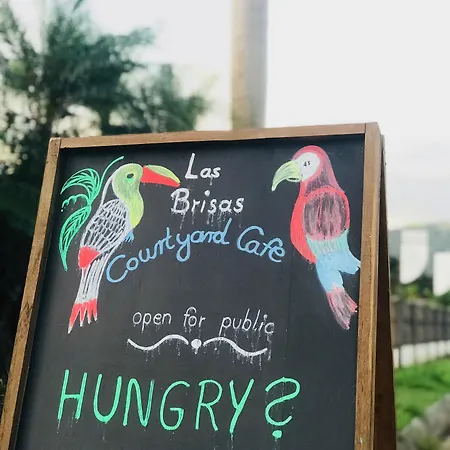 Las
Brisas
Courtyard Cafe
open for public
HUNGRY?